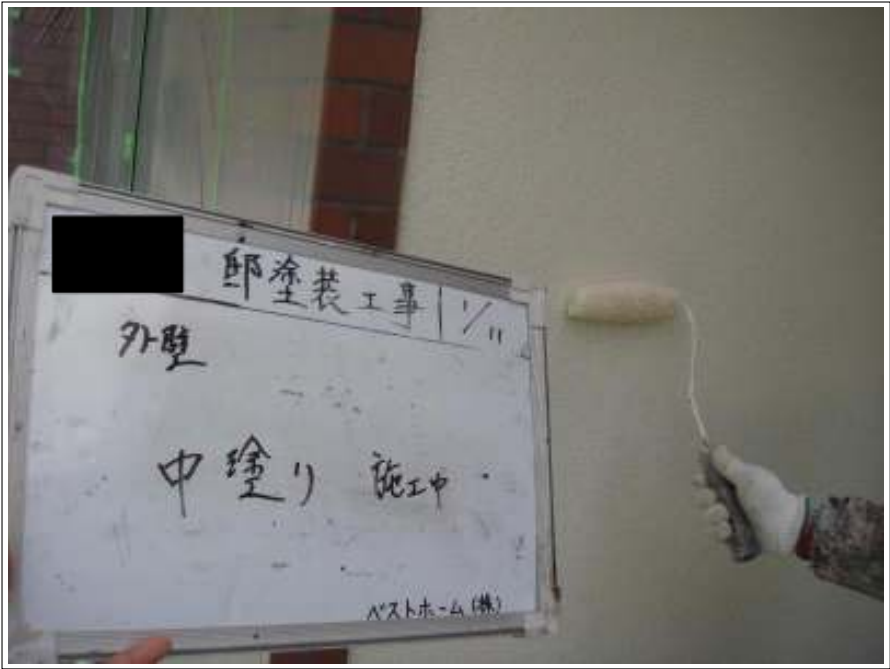 邸塗装工事 1/11
外壁
中塗り 施工中
ベストホーム(株)